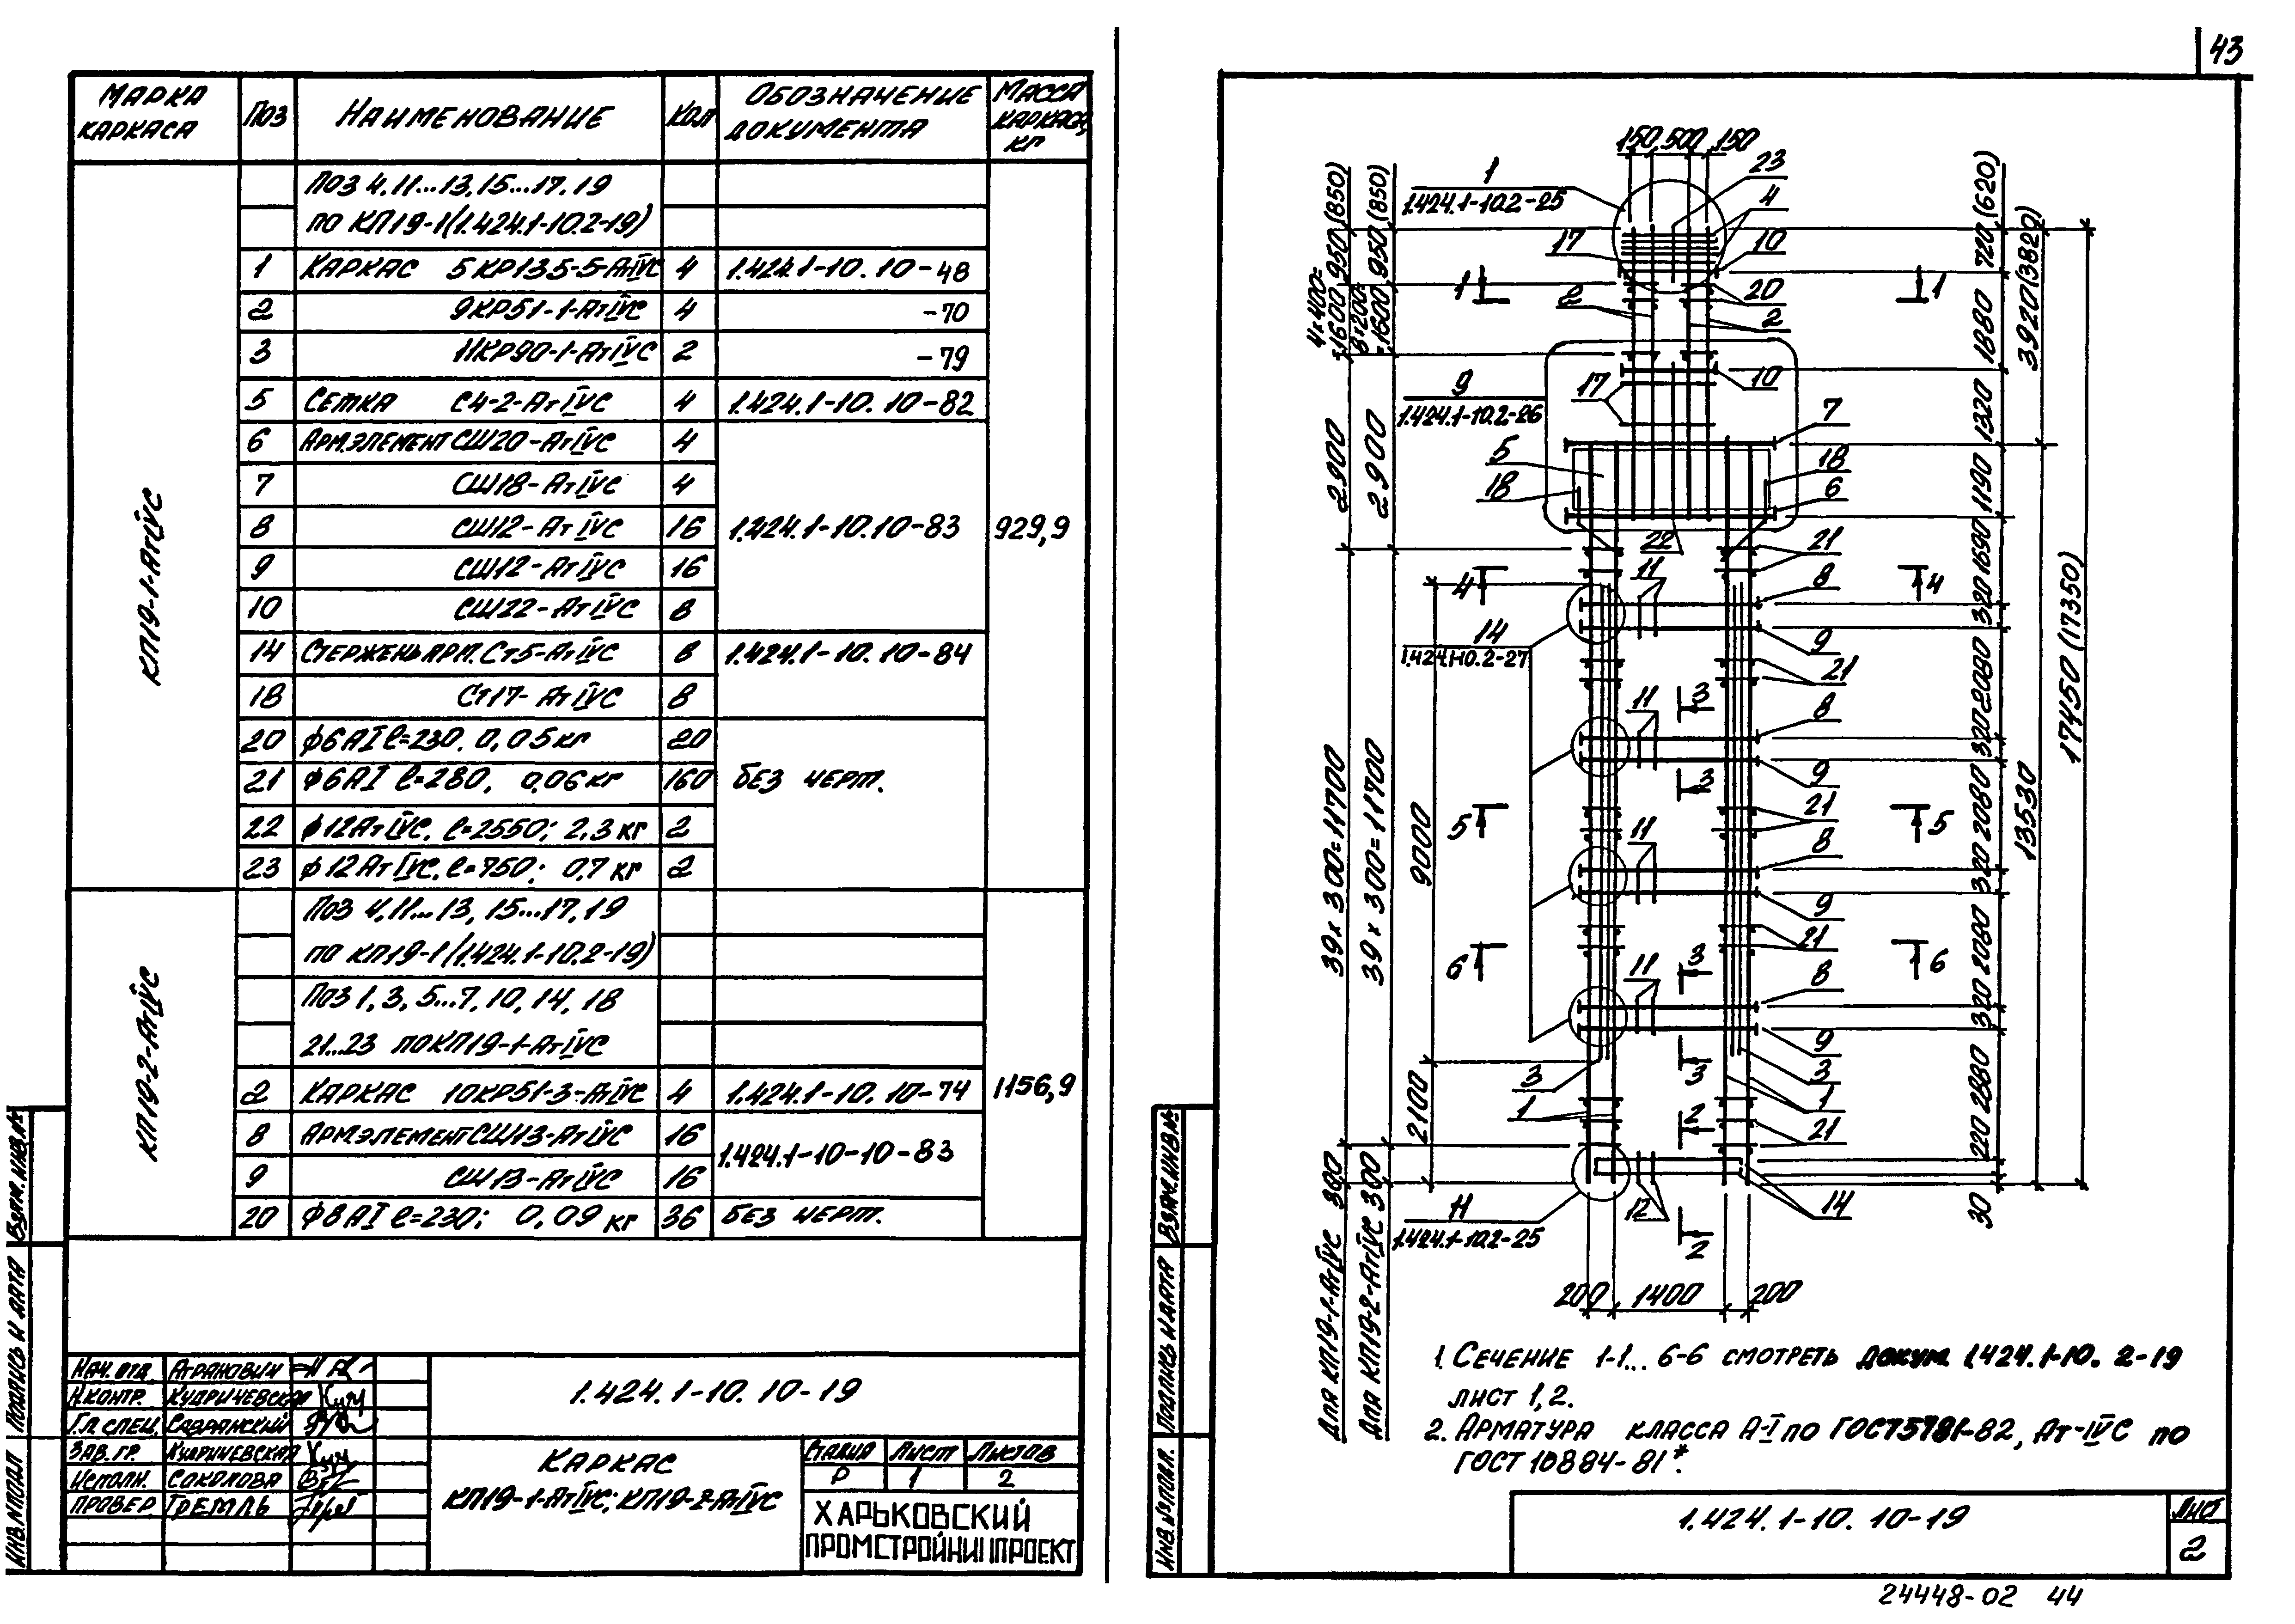 43
Марка каркаса | Поз | Наименование | Кол | Обозначение документа | Масса каркаса, кг
КП19-1-АтIVС
Поз 4, 11...13, 15...17, 19
по КП19-1(1.424.1-10.2-19)
1 Каркас 5КР135-5-АтIVС 4 1.424.1-10.10-48
2 9КР51-1-АтIVС 4 -70
3 11КР90-1-АтIVС 2 -79
5 Сетка С4-2-АтIVС 4 1.424.1-10.10-82
6 Арм.элемент СШ20-АтIVС 4
7 СШ18-АтIVС 4
8 СШ12-АтIVС 16 1.424.1-10.10-83 929,9
9 СШ12-АтIVС 16
10 СШ22-АтIVС 8
14 Стержень арм. Ст5-АтIVС 8 1.424.1-10.10-84
18 Ст17-АтIVС 8
20 ф6АI ℓ=230. 0,05кг 20
21 ф6АI ℓ=280, 0,06кг 160 без черт.
22 ф12АтIVС, ℓ=2550; 2,3 кг 2
23 ф12АтIVС, ℓ=750; 0,7 кг 2
КП19-2-АтIVС
Поз 4, 11...13, 15...17, 19
по КП19-1(1.424.1-10.2-19)
Поз 1, 3, 5...7, 10, 14, 18
21...23 по КП19-1-АтIVС
2 Каркас 10КР51-3-АтIVС 4 1.424.1-10.10-74 1156,9
8 Арм.элемент СШ13-АтIVС 16 1.424.1-10-10-83
9 СШ13-АтIVС 16
20 ф8АI ℓ=230; 0,09 кг 36 без черт.
Взам.инв.№
Подпись и дата
Инв.№подл
Нач. отд. Агранович
Н.контр. Кудричевская
Гл. спец. Савранский
Зав. гр. Кудричевская
Исполн. Соколова
Провер. Гремль
1.424.1-10.10-19
Каркас
КП19-1-АтIVС; КП19-2-АтIVС
Стадия Лист Листов
Р 1 2
Харьковский
Промстройниипроект
150 500 150
1
1.424.1-10.2-25
23
4
17
10
1 1
20
2 2
9
1.424.1-10.2-26
17
10
7
5
18
18
6
22
21
11
8
4 4
14
1.424.1-10.2-27
9
21
11
3
8
3
9
21
5 5
11
8
9
21
6 6
11
3
8
9
3
3
3
1
1
2
21
11
1.424.1-10.2-25
12
2
14
950 (850)
950 (850)
4×400=
=1600
8×200=
=1600
2900
2900
39 × 300=11700
39 × 300=11700
9000
2100
300
300
Для КП19-1-АтIVС
Для КП19-2-АтIVС
720 (620)
1880
1320
1190
1690
320
2080
320
2080
320
2080
320
2880
220
30
3920(3820)
13530
17450 (17350)
200 1400 200
1. Сечение 1-1... 6-6 смотреть докум. 1.424.1-10. 2-19
лист 1, 2.
2. Арматура класса А-I по ГОСТ5781-82, Ат-IVС по
ГОСТ 10884-81*.
Взам.инв.№
Подпись и дата
Инв.№подл.
1.424.1-10.10-19
Лист
2
24448-02 44